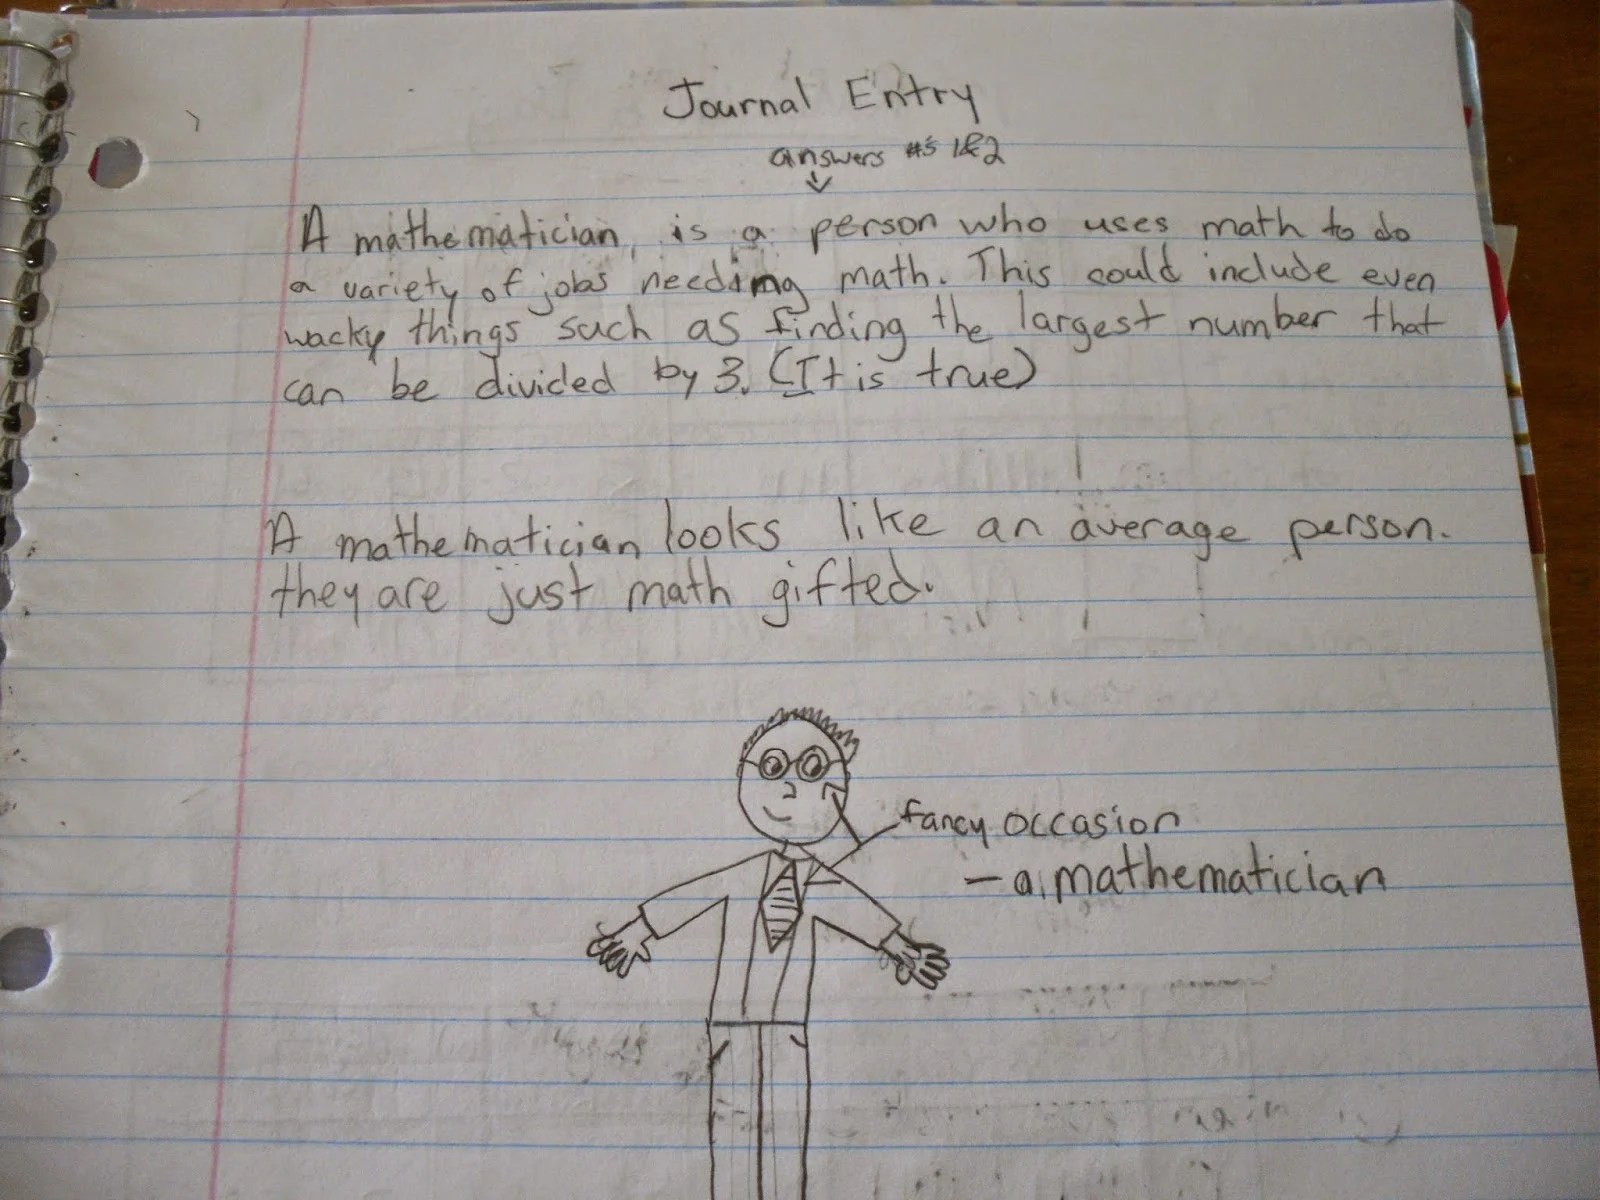 Journal Entry
answers #s 1&2
A mathematician, is a person who uses math to do
a variety of jobs needing math. This could include even
wacky things such as finding the largest number that
can be divided by 3. (It is true)
A mathematician looks like an average person.
they are just math gifted.
fancy occasion
- a mathematician